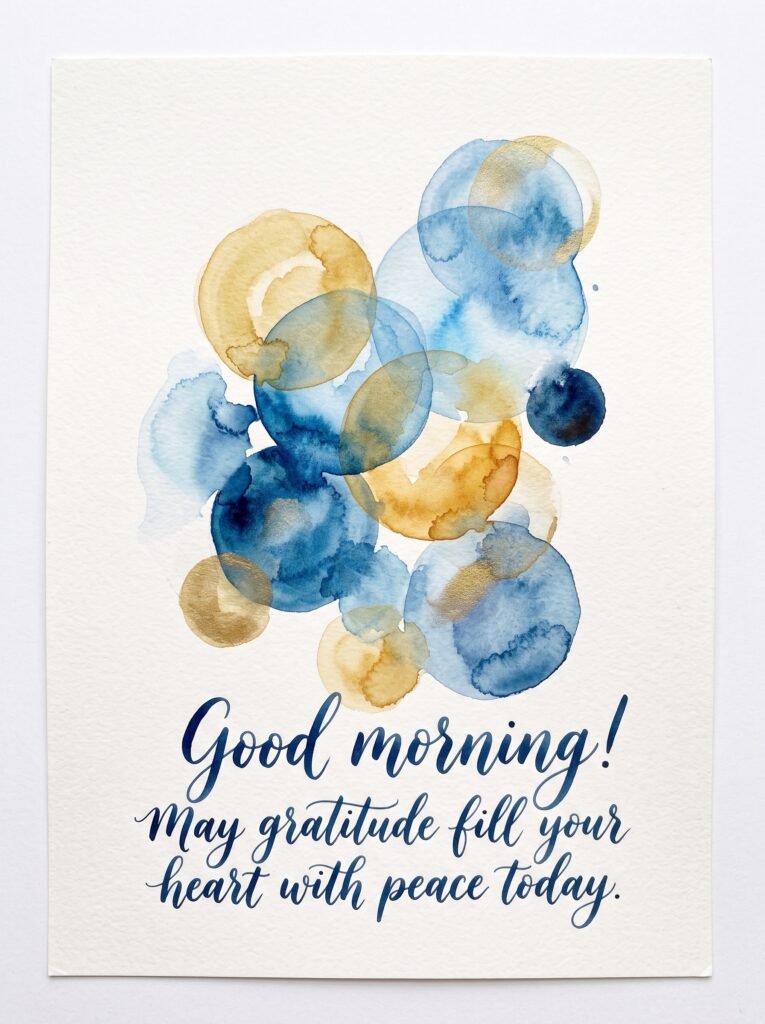 Good morning!
May gratitude fill your
heart with peace today.